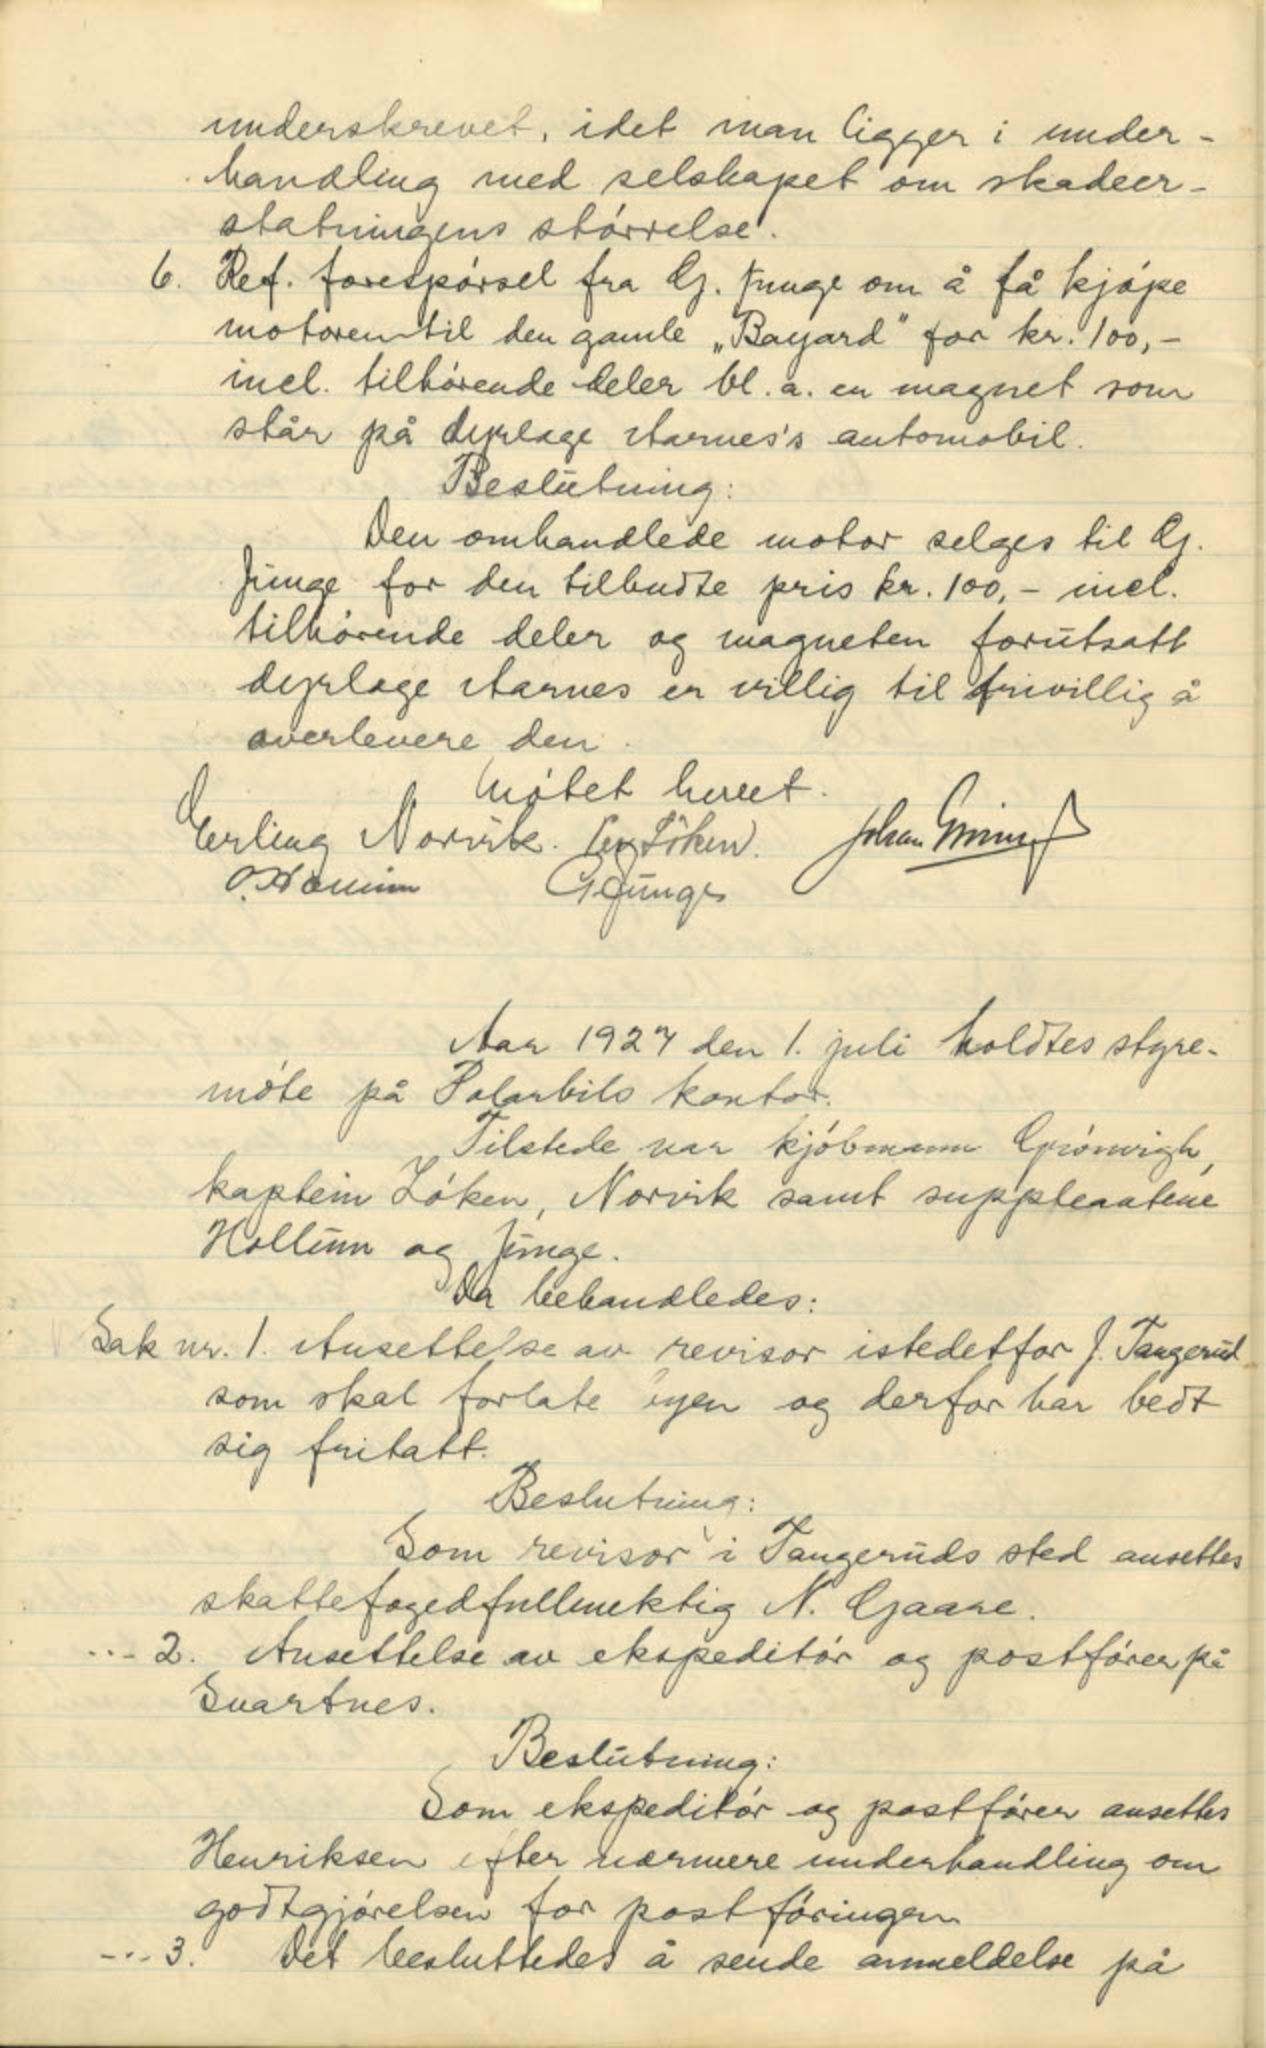 underskrevet, idet man ligger i under-
handling med selskapet om skadeer-
statningens størrelse.
6. Ref. forespørsel fra Gj. Junge om å få kjøpe
motoren til den gamle „Bayard" for kr. 100,-
incl. tilhørende deler bl. a. en magnet som
står på dyrlæge Aarnes's automobil.
Beslutning:
Den omhandlede motor selges til Gj.
Junge for den tilbudte pris kr. 100,- incl.
tilhørende deler og magneten forutsatt
dyrlæge Aarnes er villig til frivillig å
overlevere den.
Møtet hevet.
Erling Norvik. Løken. Johan
GJunge
Aar 1927 den 1. juli holdtes styre-
møte på Polarbils kontor.
Tilstede var kjøbmann Grönvigh,
kaptein Løken, Norvik samt suppleantene
Hollum og Junge.
Da behandledes:
Sak nr. 1. Ansettelse av revisor istedetfor J. Tangerud
som skal forlate byen og derfor har bedt
sig fritatt.
Beslutning:
Som revisor i Tangeruds sted ansettes
skattefogedfullmektig N. Gaare.
-..- 2. Ansettelse av ekspeditør og postfører på
Svartnes.
Beslutning:
Som ekspeditør og postfører ansettes
Henriksen efter nærmere underhandling om
godtgjørelsen for postføringen
-..- 3. Det besluttedes å sende anmeldelse på